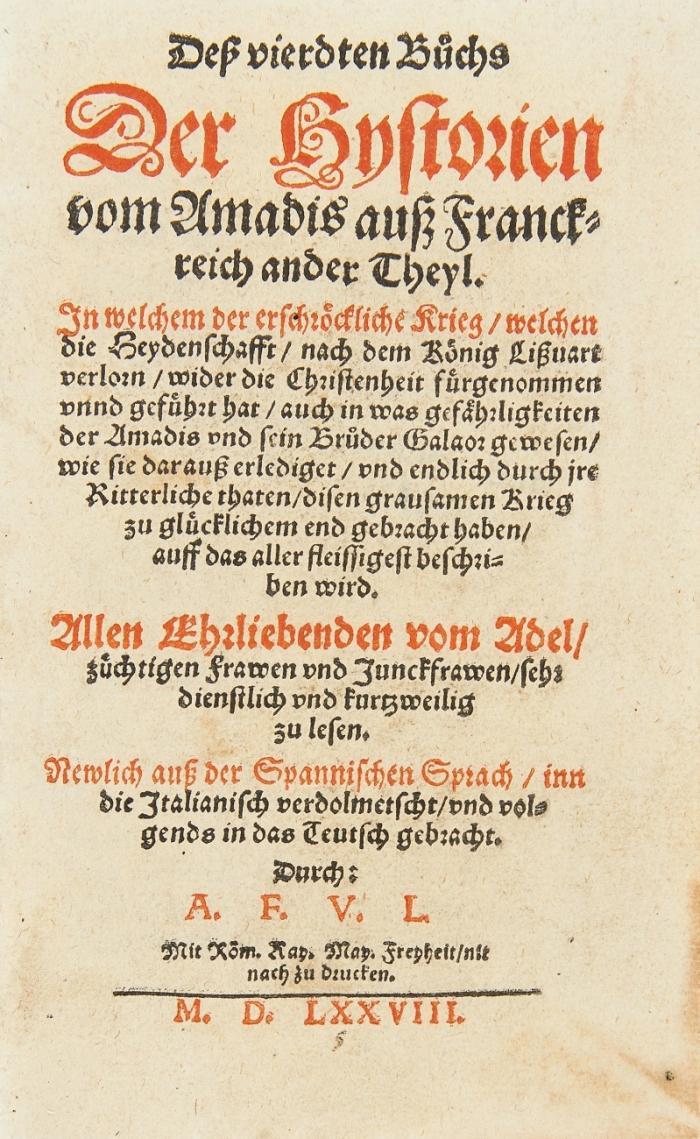 Deß vierdten Bůchs
Der Hystorien
vom Amadis auß Franck⸗
reich ander Theyl.
In welchem der erschröckliche Krieg / welchen
die Heydenschafft / nach dem König Lißuart
verlorn / wider die Christenheit fürgenommen
vnnd gefůhrt hat / auch in was gefåhrligkeiten
der Amadis vnd sein Brůder Galaor gewesen/
wie sie darauß erlediget / vnd endlich durch jre
Ritterliche thaten/disen grausamen Krieg
zu glücklichem end gebracht haben/
auff das aller fleissigest beschri⸗
ben wird.
Allen Ehrliebenden vom Adel/
züchtigen Frawen vnd Junckfrawen/sehr
dienstlich vnd kurtzweilig
zu lesen.
Newlich auß der Spannischen Sprach / inn
die Italianisch verdolmetscht/vnd vol⸗
gends in das Teutsch gebracht.
Durch:
A. F. V. L.
Mit Röm. Kay. May. Freyheit/nit
nach zu drucken.
M. D. LXXVIII.